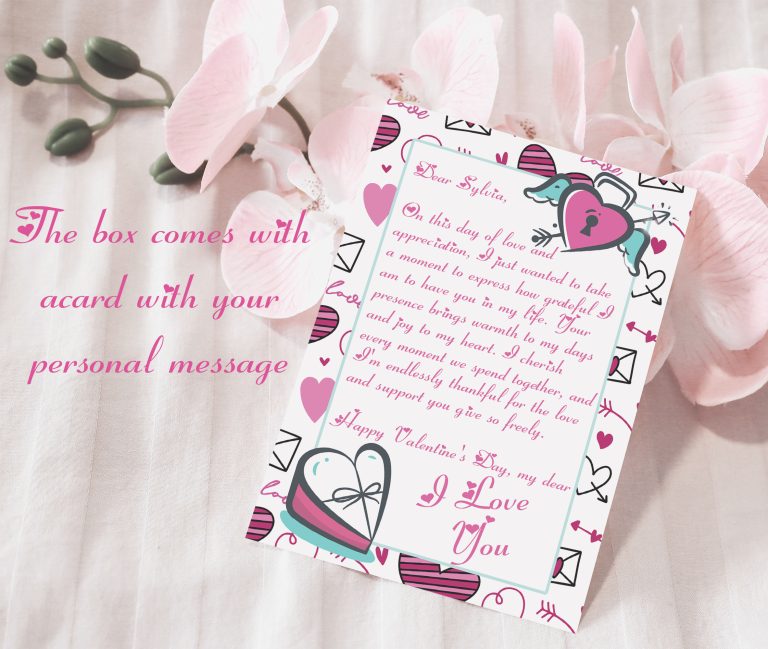 The box comes with
acard with your
personal message
Dear Sylvia,
On this day of love and
appreciation, I just wanted to take
a moment to express how grateful I
am to have you in my life. Your
presence brings warmth to my days
and joy to my heart. I cherish
every moment we spend together, and
I'm endlessly thankful for the love
and support you give so freely.
Happy Valentine's Day, my dear
I Love
You
love
love
love
love
love